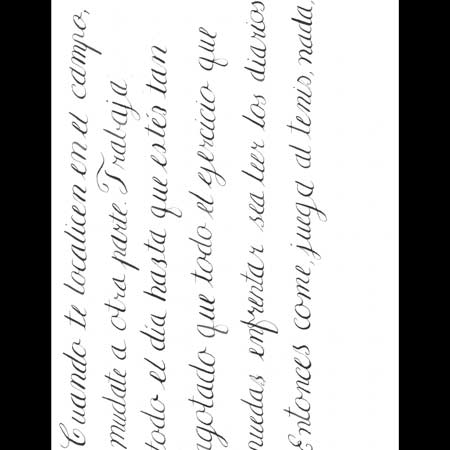 Cuando te localicen en el campo,
mudate a otra parte. Trabaja
todo el día hasta que estés tan
agotado que todo el ejercicio que
puedas enfrentar sea leer los diarios
Entonces come, juega al tenis, nada,